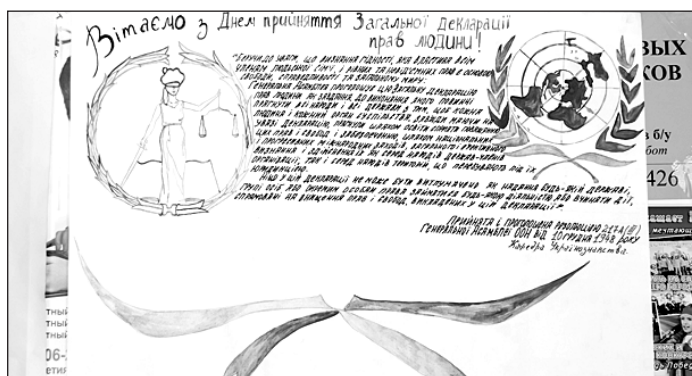 Вітаємо з Днем прийняття Загальної декларації
прав людини!
"Беручи до уваги, що визнання гідності, яка властива всім
членам людської сім'ї, і рівних та невід'ємних прав є основою
свободи, справедливості та загального миру:
Генеральна Асамблея проголошує цю Загальну декларацію
прав людини як завдання, до виконання якого повинні
прагнути всі народи і всі держави з тим, щоб кожна
людина і кожний орган суспільства, завжди маючи на
увазі Декларацію, прагнули шляхом освіти сприяти поважанню
цих прав і свобод і забезпеченню, шляхом національних
і прогресивних міжнародних заходів, загального і ефективного
визнання і здійснення їх як серед народів держав-членів
організації, так і серед народів територій, що перебувають під їх
юрисдикцією.
Ніщо у цій декларації не може бути витлумачено як надання будь-якій державі,
групі осіб або окремим особам права займатися будь-якою діяльністю або вчиняти дії,
спрямовані на знищення прав і свобод, викладених у цій декларації".
Прийнята і проголошена резолюцією 217А (III)
Генеральної Асамблеї ООН від 10 грудня 1948 року
Кафедра Українознавства.
ВЫХ
КОВ
а б/у
бот
426
тный
тный
тны
06-